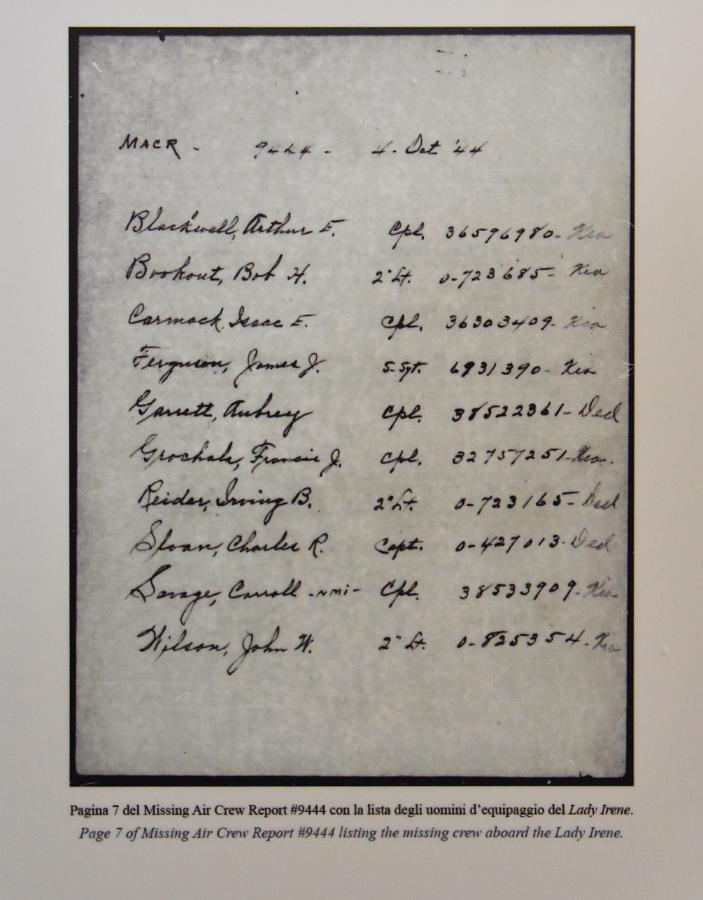 MACR - 9444 - 4 - Oct '44
Blackwell, Arthur E. Cpl. 36596980 - Kia
Bookout, Bob H. 2" Lt. 0-723685 - Kia
Carmack, Isaac E. Cpl. 36303409 - Kia
Ferguson, James J. S. Sgt. 6931390 - Kia
Garrett, Aubrey Cpl. 38522361 - Ded
Grochala, Francis J. Cpl. 32757251 - Kia.
Reider, Irving B. 2" Lt. 0-723165 - Ded
Sloan, Charles R. Capt. 0-427013 - Ded
Savage, Carroll -NMI- Cpl. 38533909 - Kia
Wilson, John W. 2" Lt. 0-825354 - Kia
Pagina 7 del Missing Air Crew Report #9444 con la lista degli uomini d'equipaggio del Lady Irene.
Page 7 of Missing Air Crew Report #9444 listing the missing crew aboard the Lady Irene.